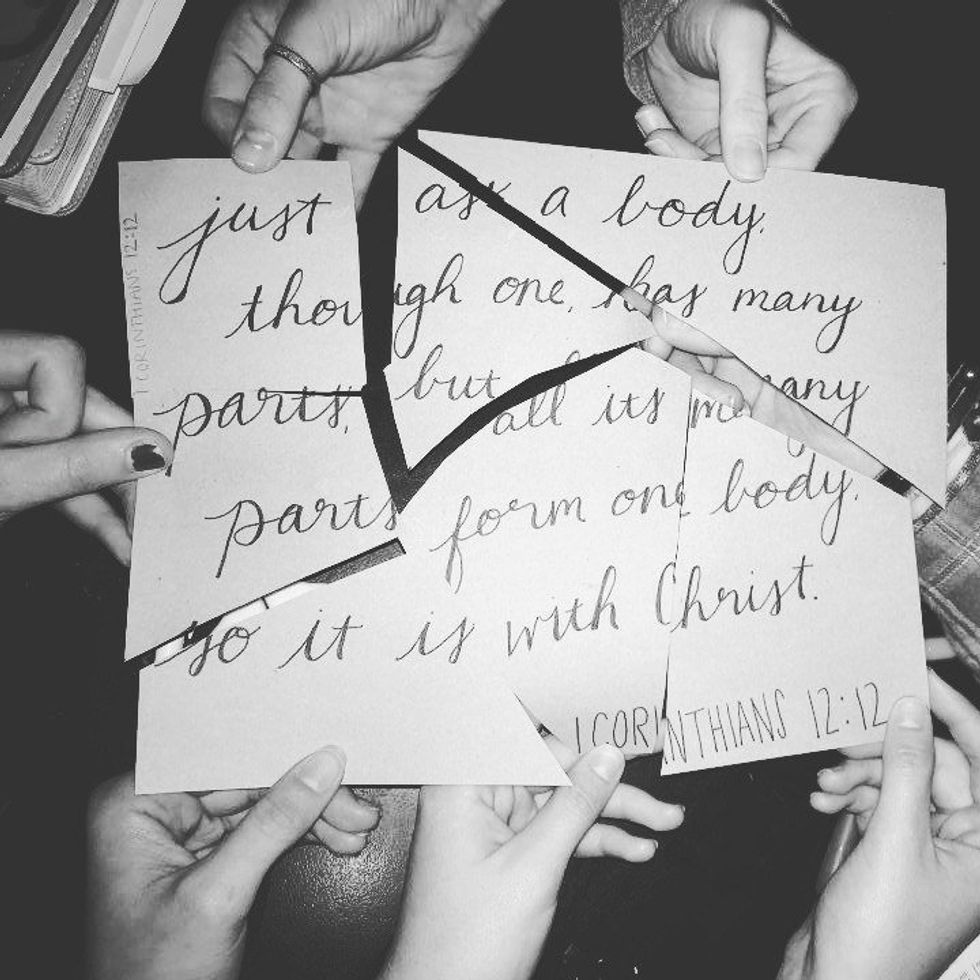 just as a body,
though one, has many
parts, but all its many
parts form one body,
so it is with Christ.
1 CORINTHIANS 12:12
1 CORINTHIANS 12:12